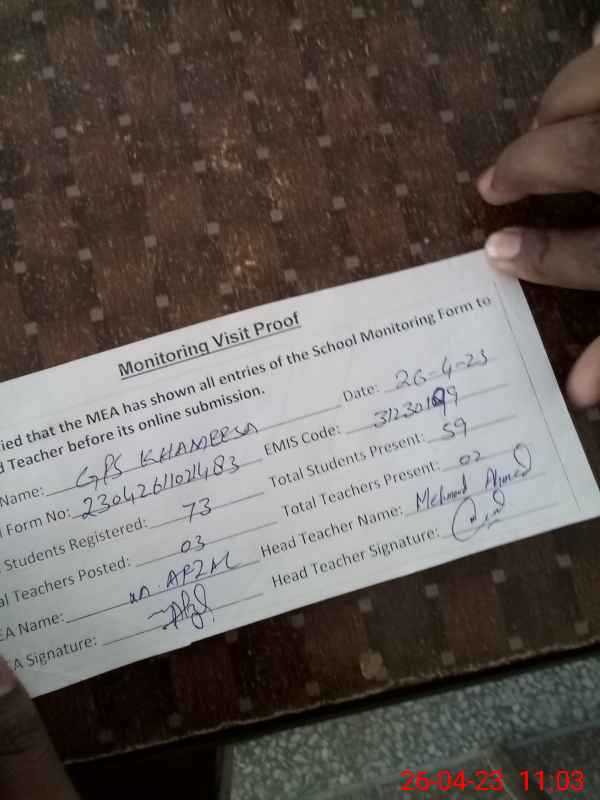 Monitoring Visit Proof
ried that the MEA has shown all entries of the School Monitoring Form to
d Teacher before its online submission.
Date: 26-4-23
Name: GPS KHAMEESA
EMIS Code: 31230199
l Form No: 23042611021483
Total Students Present: 59
Students Registered: 73
Total Teachers Present: 02
al Teachers Posted: 03
Head Teacher Name: Mehmood Ahmed
EA Name: M. AFZAL
Head Teacher Signature:
A Signature:
26-04-23 11:03